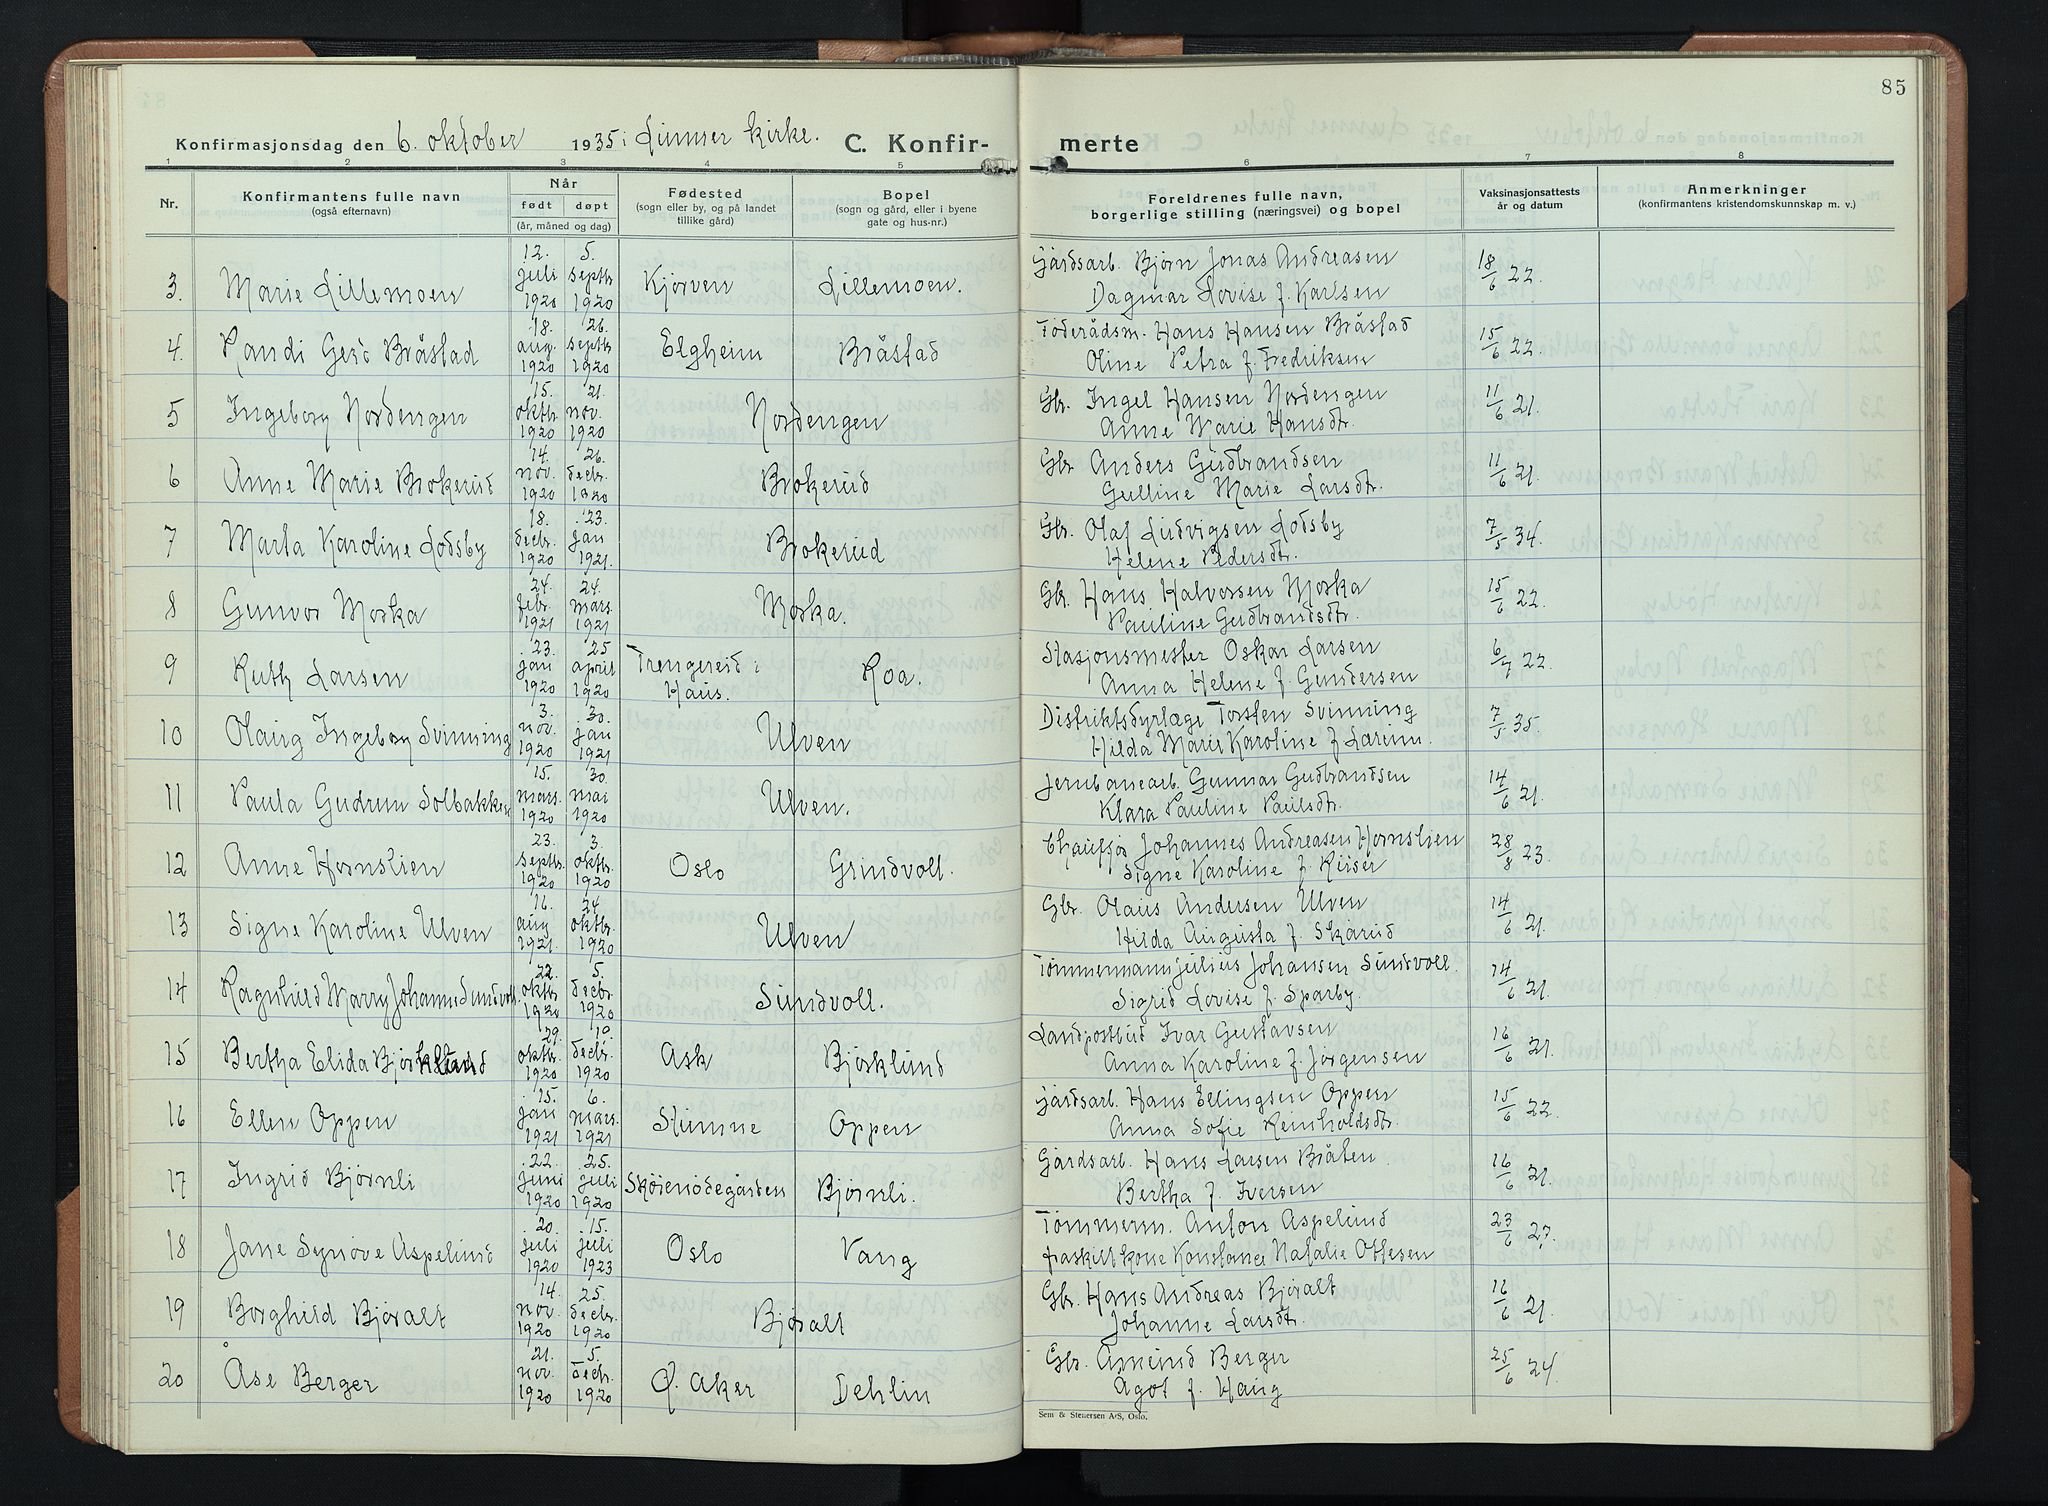 85
Konfirmasjonsdag den 6. oktober 1935 i Lunner kirke. C. Konfir- merte
1 2 3 4 5 6 7 8
Nr. Konfirmantens fulle navn (også efternavn) Når født døpt (år, måned og dag) Fødested (sogn eller by, og på landet tillike gård) Bopel (sogn og gård, eller i byene gate og hus-nr.) Foreldrenes fulle navn, borgerlige stilling (næringsvei) og bopel Vaksinasjonsattests år og datum Anmerkninger (konfirmantens kristendomskunnskap m. v.)
3. Marie Lillemoen 12. juli 1920 5. septbr. 1920 Kjørven Lillemoen. Gårdsarb. Bjørn Jonas Andreasen
Dagmar Lovise f. Karlsen 18/6 22.
4. Randi Gerd Bråstad 18. aug. 1920 26. septbr 1920 Elgheim Bråstad Føderådsm. Hans Hansen Bråstad
Oline Petra f. Fredriksen 15/6 22.
5 Ingeborg Nordengen 15. oktbr. 1920 21. nov. 1920 Nordengen Gbr. Ingel Hansen Nordengen
Anne Marie Hansdtr. 11/6 21.
6 Anne Marie Brokerud 14. nov. 1920 26. decbr. 1920 Brokerud Gbr. Anders Gudbrandsen
Gulline Marie Larsdtr. 11/6 21.
7 Marta Karoline Lodsby 18. decbr. 1920 23. jan 1921. Brokerud Gbr. Olaf Ludvigsen Lodsby
Helene Pedersdtr. 7/5 34.
8 Gunvor Moska 24. febr. 1921 24. mars. 1921 Moska. Gbr. Hans Halvorsen Moska
Pauline Gudbrandsdtr. 15/6 22.
9 Ruth Larsen 23. jan 1920 25 april 1920 Trengereid i Haus. Roa. Stasjonsmester Oskar Larsen
Anna Helene f. Gundersen 6/7 22.
10 Olaug Ingeborg Svinning 3. nov. 1920 30. jan 1921 Ulven Distriktsdyrlæge Torsten Svinning
Hilda Marie Karoline f. Larum. 7/5 35.
11 Paula Gudrun Solbakken 15. mars. 1920 30. mai 1920 Ulven. Jernbanearb. Gunnar Gudbrandsen
Klara Pauline Paulsdtr. 14/6 21.
12 Anne Hornslien 23. septbr. 1920 3. oktbr. 1920 Oslo Grindvoll. Chauffør Johannes Andreasen Hornslien
Signe Karoline f. Kruser 28/8 23.
13 Signe Karoline Ulven 16. aug 1921. 24. oktbr. 1920 Ulven Gbr. Olaus Andersen Ulven
Hilda Augusta f. Skarud 14/6 21.
14 Ragnhild Marry Johanne Sundvoll. 22. oktbr 1920 5. decbr. 1920 Sundvoll. Tømmermann Julius Johansen Sundvoll.
Sigrid Lovise f. Sparby. 14/6 21.
15 Bertha Elida Bjørklund 29. oktbr. 1920 19. decbr. 1920 Ask Bjørklund Landpostbud Ivar Gustavsen
Anna Karoline f. Jørgensen 16/6 21.
16 Ellen Oppen 15. jan 1921 6. mars. 1921 Stumne Oppen Gårdsarb. Hans Ellingsen Oppen
Anna Sofie Reinholdsdtr. 15/6 22.
17 Ingrid Bjørnli 22. juni 1920 25. juli 1920 Skøienødegården Bjørnli. Gårdsarb. Hans Larsen Bråten
Bertha f. Iversen 16/6 21.
18 Jane Synøve Aspelund 20. juli 1920 15. juli 1923 Oslo Vang Tømmerm. Anton Aspelund
fraskilt kone Konstance Natalie Ottesen 23/6 27.
19 Borghild Bjøralt 14. nov. 1920 25. decbr. 1920 Bjøralt Gbr. Hans Andreas Bjøralt
Johanne Larsdtr. 16/6 21.
20 Åse Berger 21. nov. 1920 5. decbr. 1920 Ø. Aker Dehlin Gbr. Åmund Berger
Ågot f. Haug 25/6 24.
Sem & Stenersen A/S, Oslo.